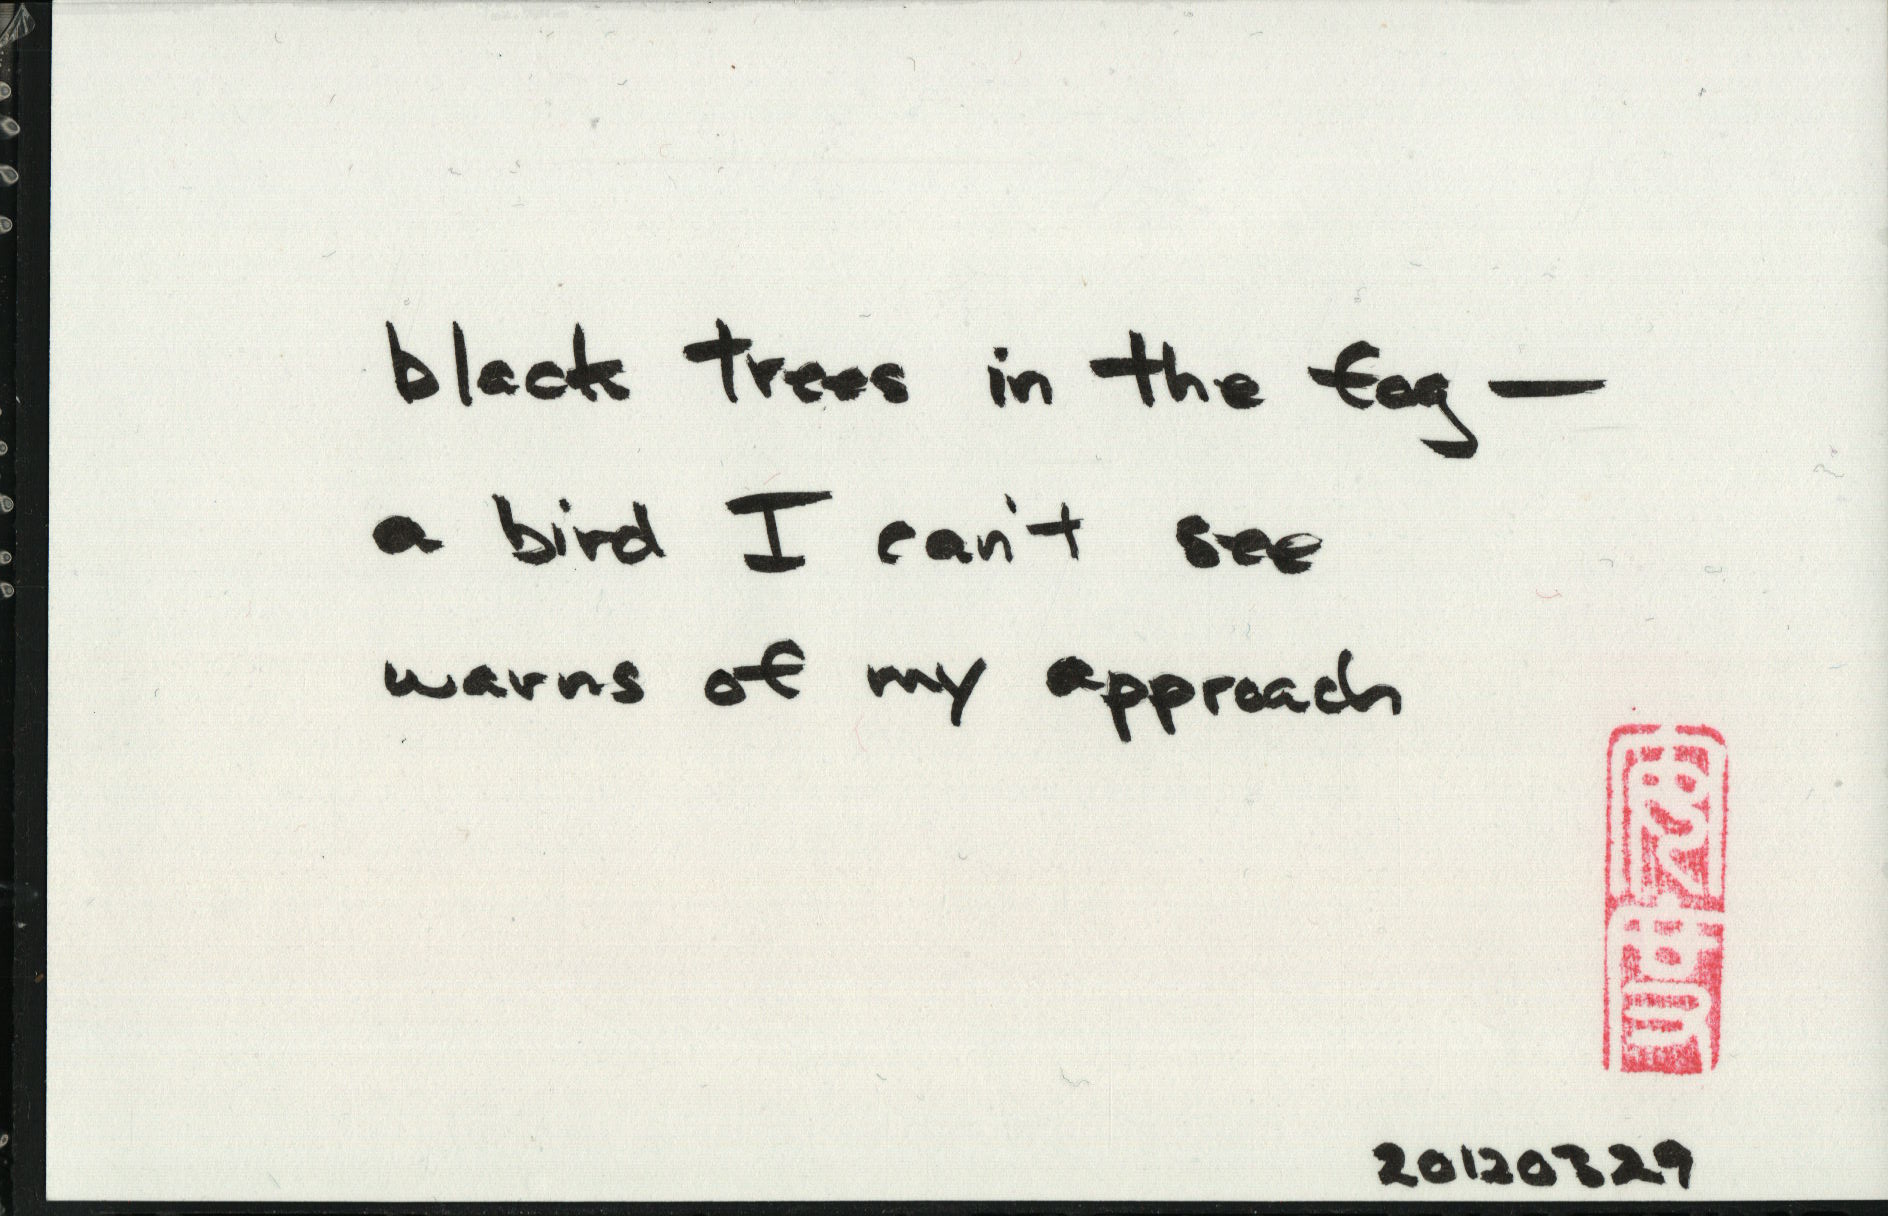 black trees in the fog —
a bird I can't see
warns of my approach
20120329